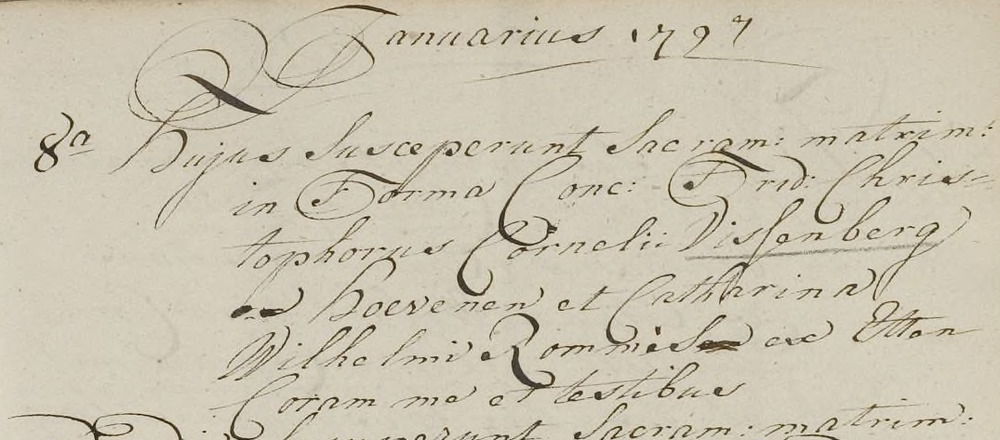 Januarius 1797
8a Hujus Susceperunt Sacram: matrim:
in Forma Conc: Trid: Chris=
tophorus Cornelii Dissenberg
ex Hoevenen et Catharina
Wilhelmi Rommese ex Etten
Coram me et testibus
Sacram: matrim: